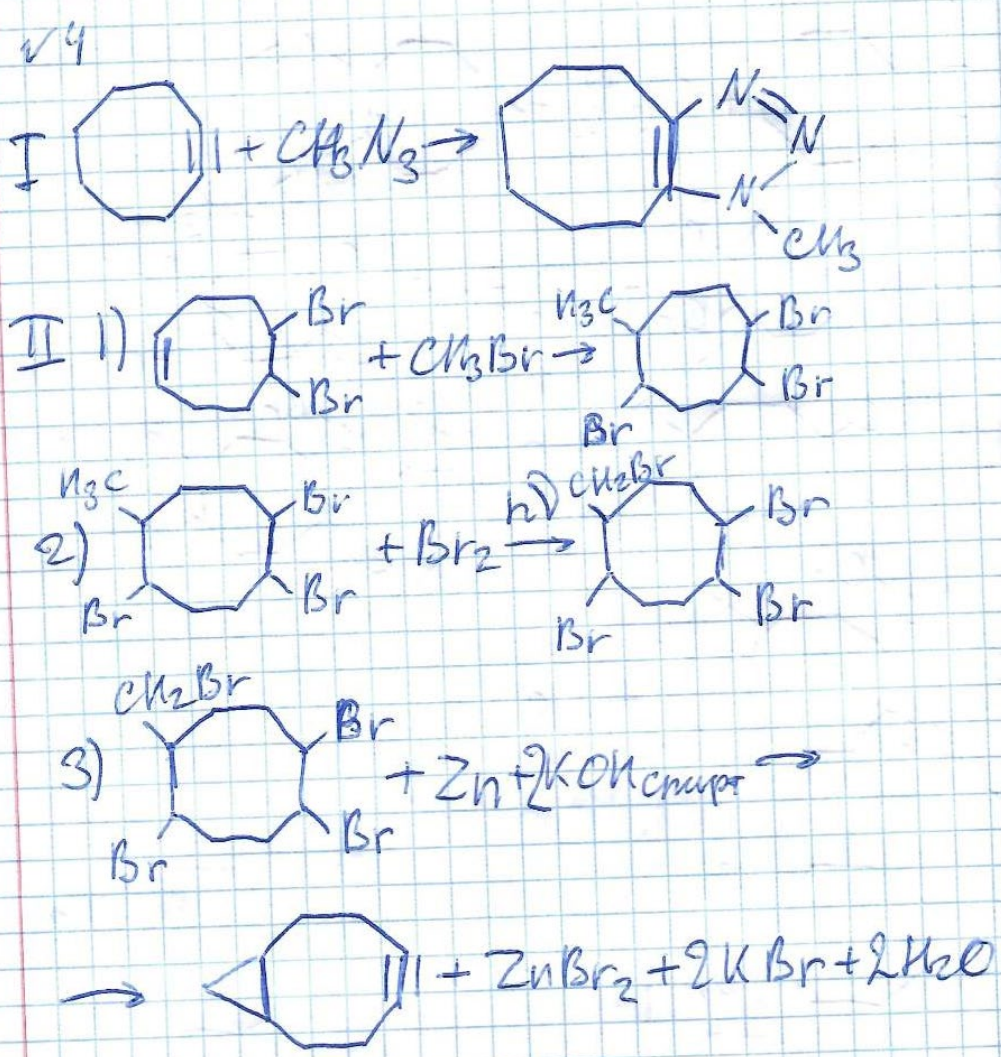 №4
I + CH3N3 → N N N CH3
II 1) Br Br + CH3Br → H3C Br Br Br
2) H3C Br Br Br + Br2 hν → CH2Br Br Br Br
3) CH2Br Br Br Br + Zn + 2KOH спирт →
→ + ZnBr2 + 2KBr + 2H2O